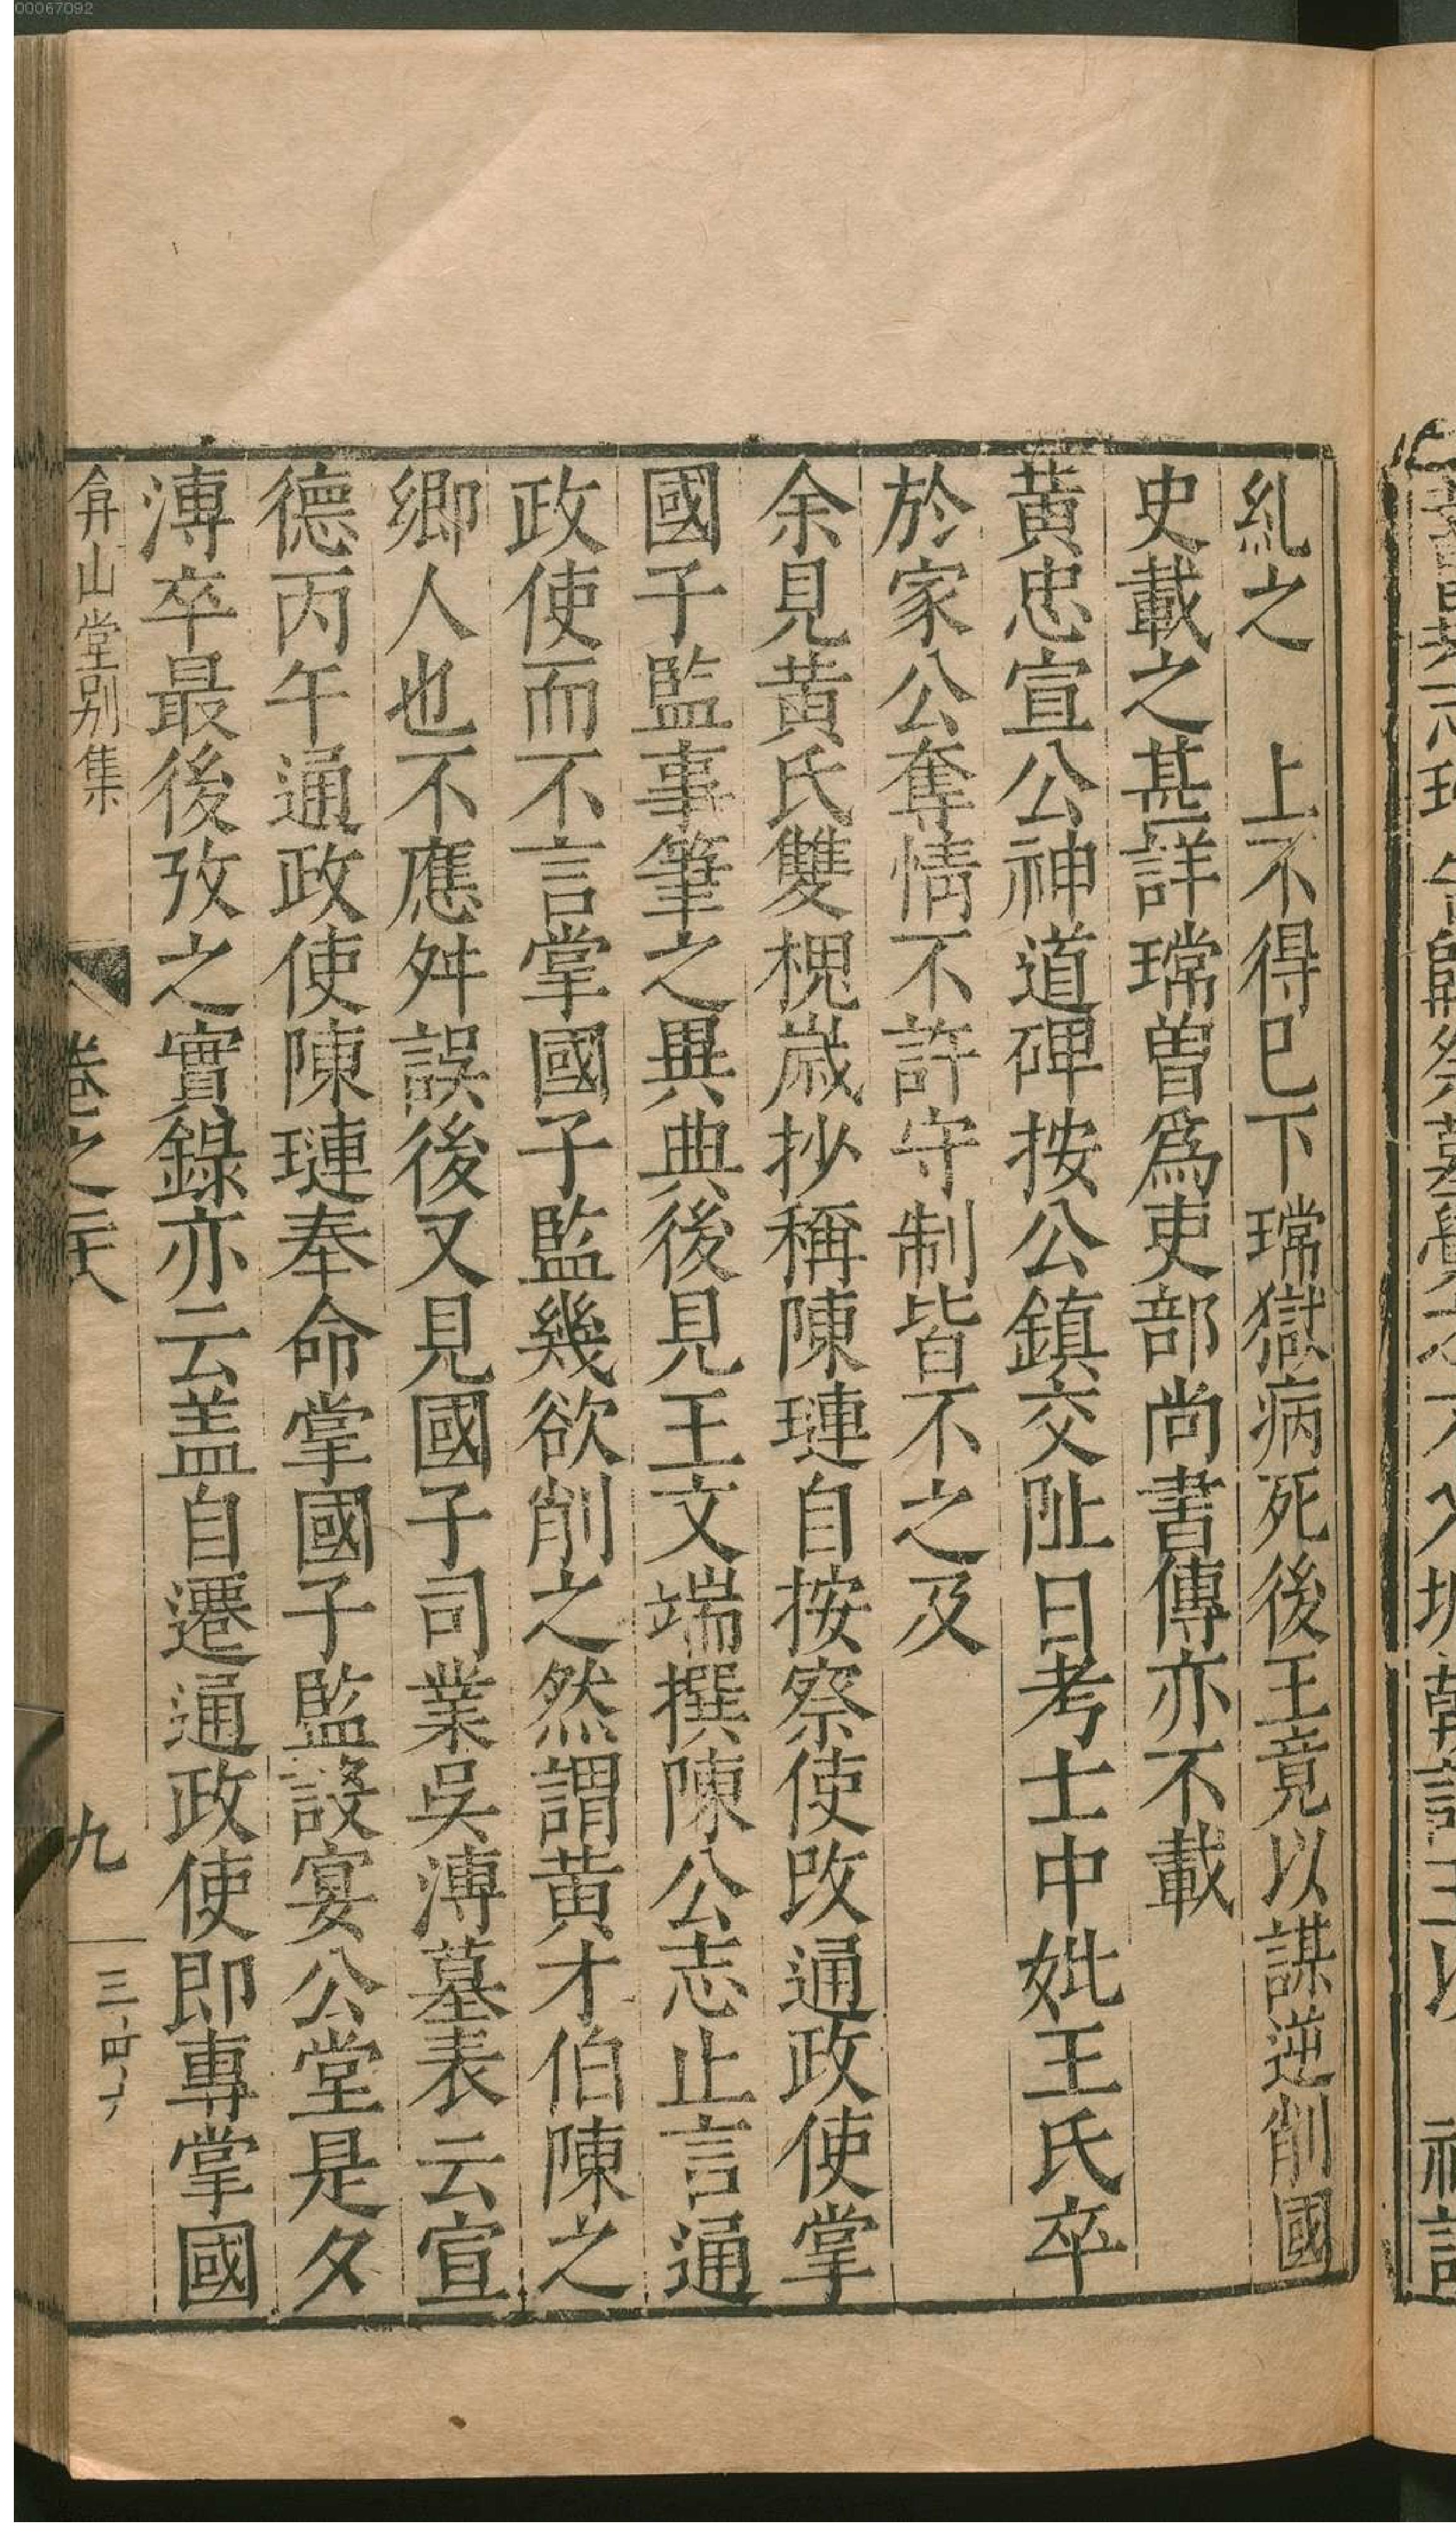 00067092
糺之　上不得已下瑺獄病死後王竟以謀逆削國
史載之甚詳瑺曽爲吏部尚書傳亦不載
黄忠宣公神道碑按公鎮交阯日考士中妣王氏卒
於家公奪情不許守制皆不之及
余見黄氏雙槐歲抄稱陳璉自按察使改通政使掌
國子監事筆之異典後見王文端撰陳公志止言通
政使而不言掌國子監幾欲削之然謂黄才伯陳之
鄉人也不應舛誤後又見國子司業吳溥墓表云宣
德丙午通政使陳璉奉命掌國子監設宴公堂是夕
溥卒最後攷之實錄亦云盖自遷通政使即專掌國
弇山堂别集　卷之二十八　九